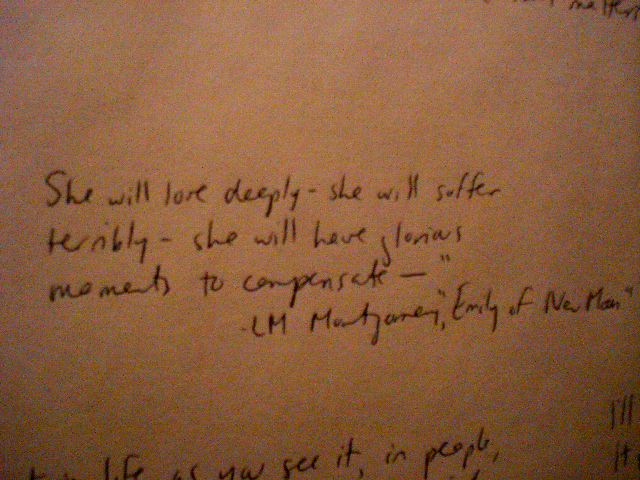 matters
She will love deeply - she will suffer
terribly - she will have glorious
moments to compensate — "
-LM Montgomery, "Emily of New Moon"
I'll
life as you see it, in people,